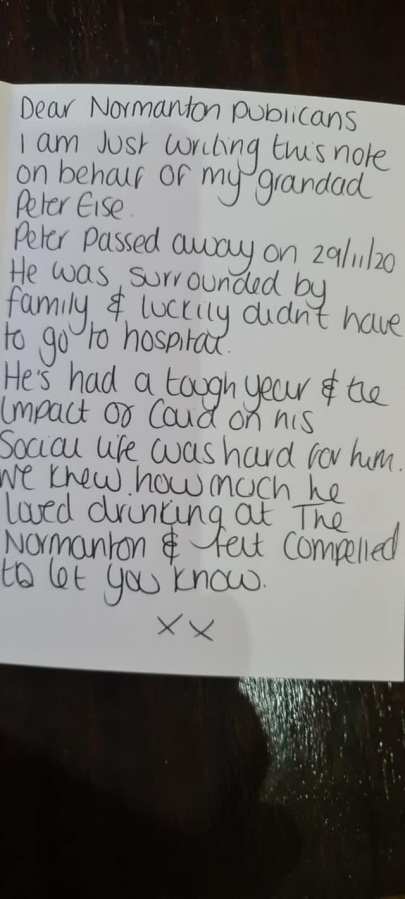 Dear Normanton Publicans
I am Just writing this note
on behalf of my grandad
Peter Else.
Peter Passed away on 29/11/20
He was surrounded by
family & luckily didn't have
to go to hospital.
He's had a tough year & the
impact of Covid on his
Social life was hard for him.
We knew how much he
loved drinking at The
Normanton & felt compelled
to let you know.
xx